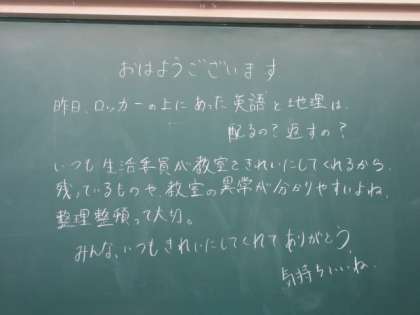 おはようございます
昨日、ロッカーの上にあった英語と地理は、
配るの？返すの？
いつも生活委員が教室をきれいにしてくれるから、
残っているものや、教室の異常が分かりやすいよね。
整理整頓って大切。
みんな、いつもきれいにしてくれてありがとう。
気持ちいいね。